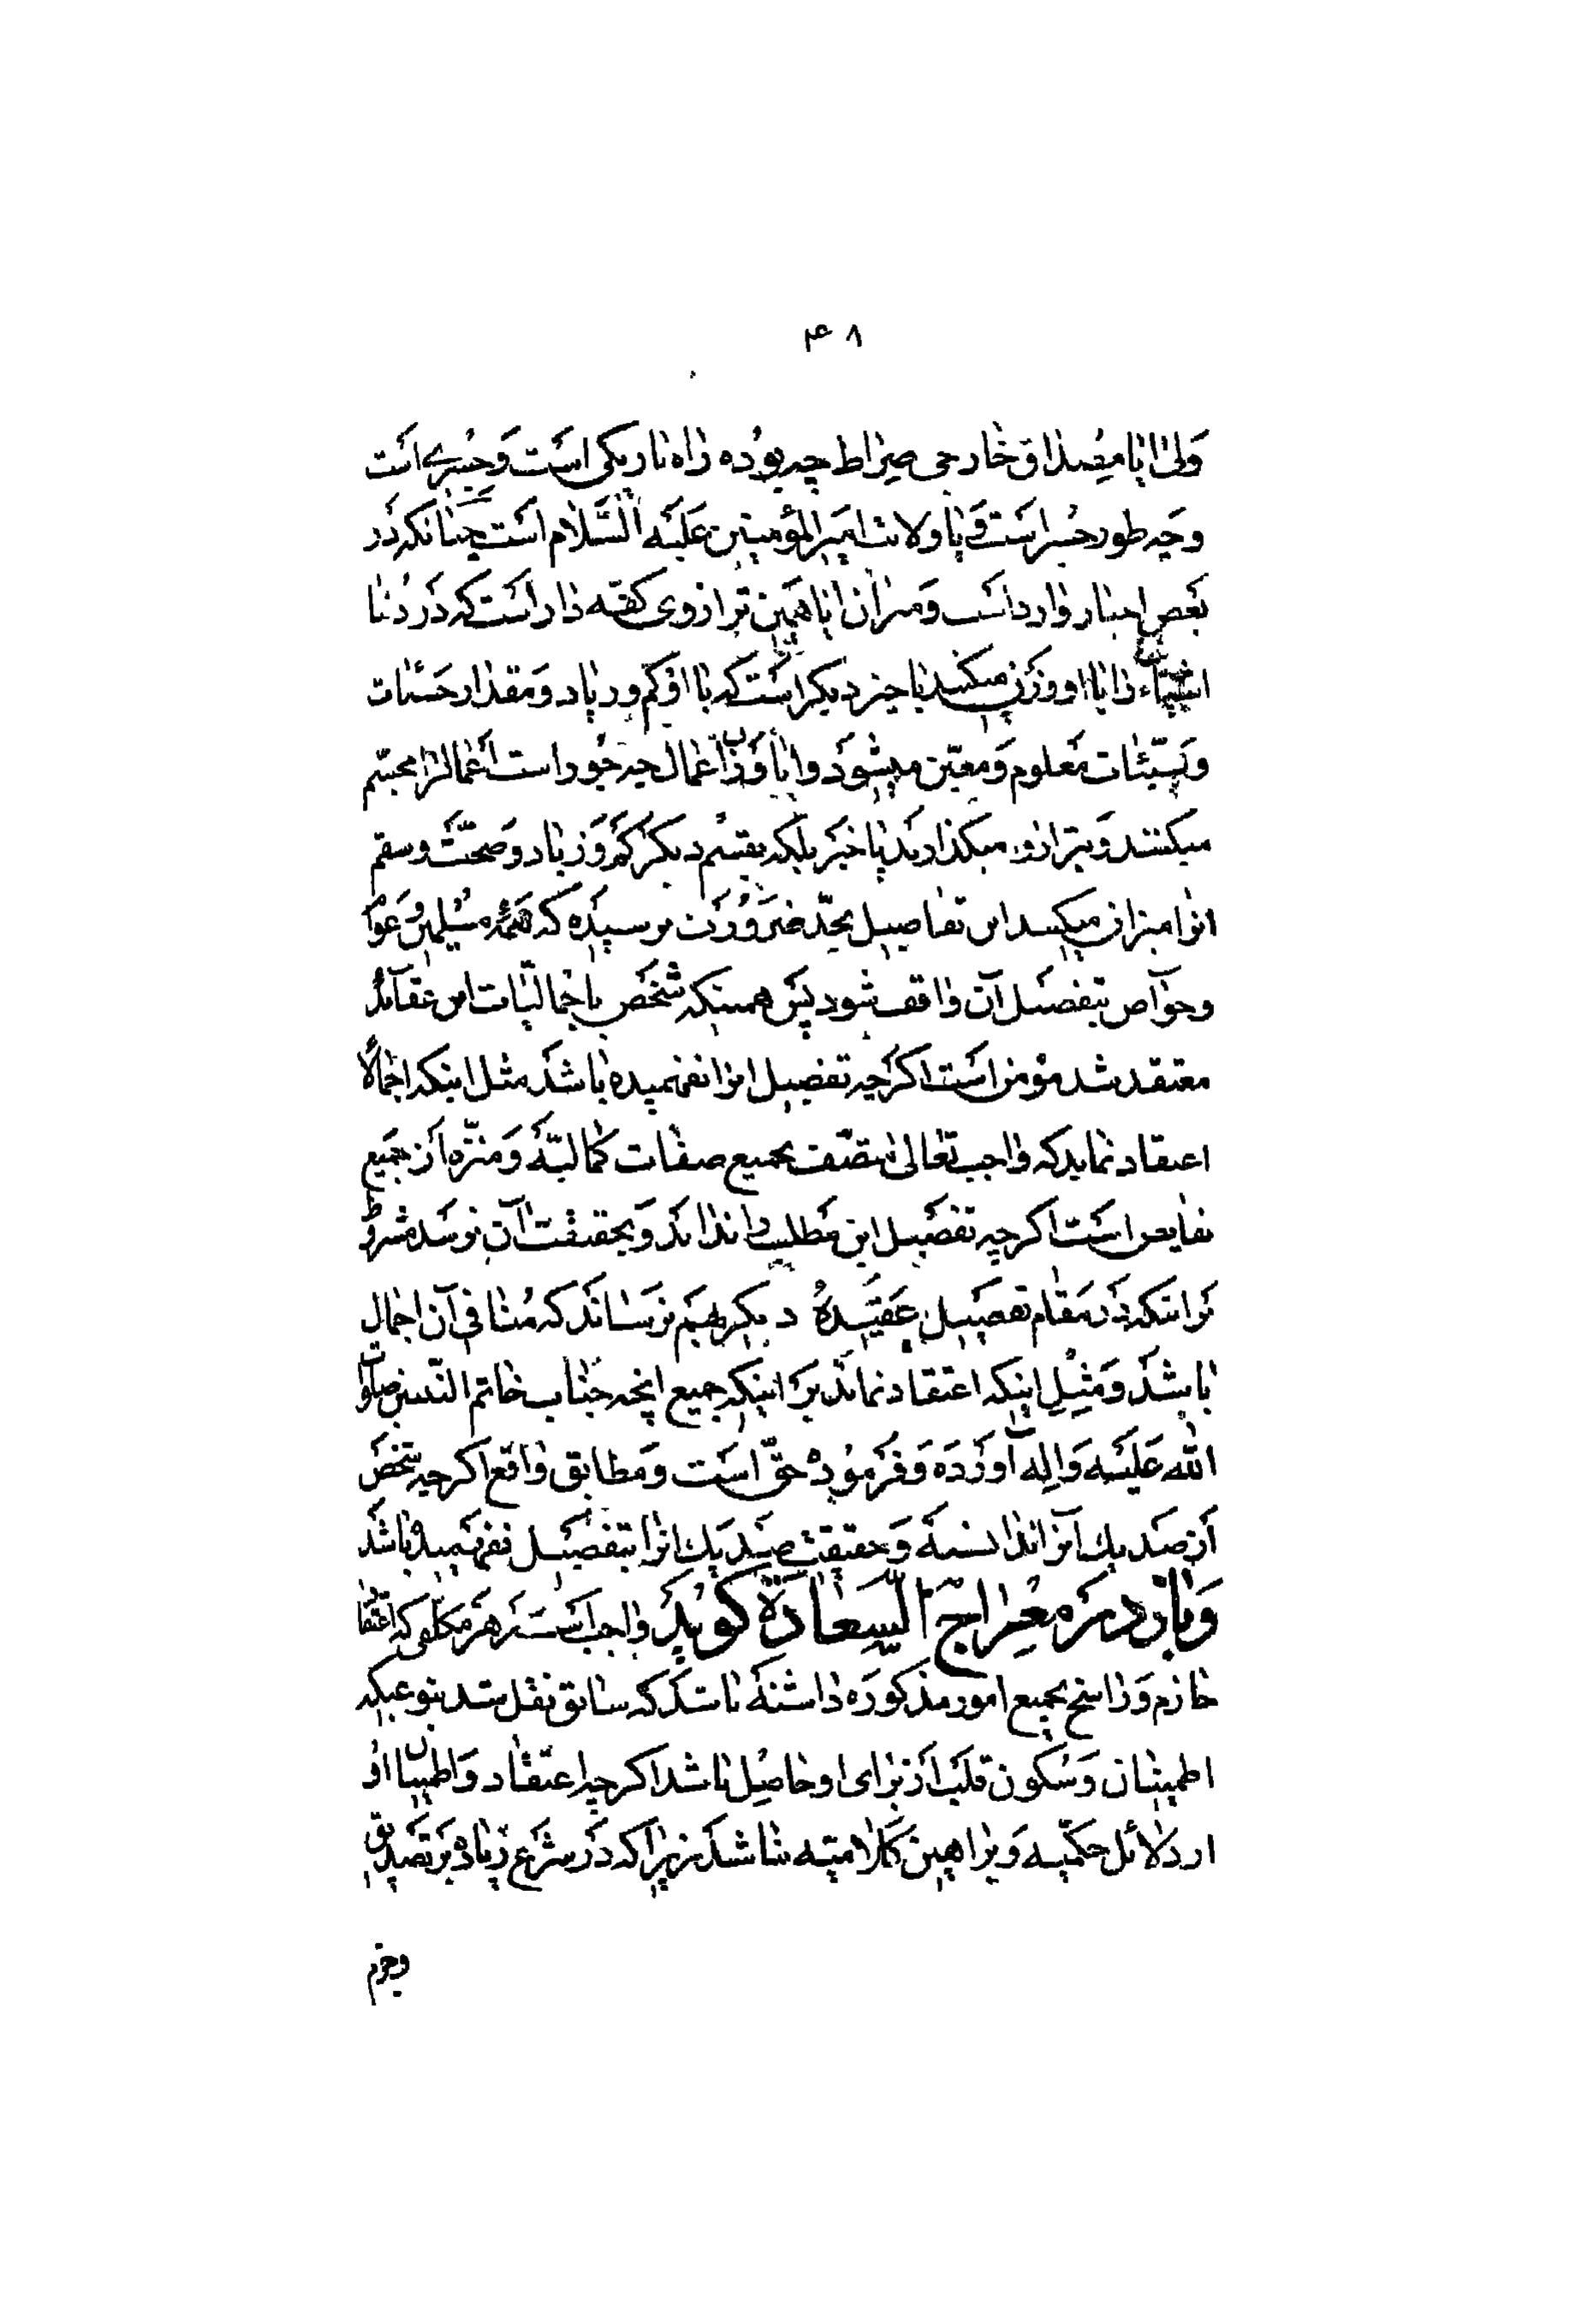 ۴۸
ولی ایا مصداق خارجی صراط چه بوده راه تاریکی است و جسری است
و چه طور جسر است و یا ولایت امیر المؤمنین علیه السلام است چنانکه در
بعض اخبار وارد است و میزان ایا همین ترازوی کفّه دار است که در دنیا
اشیاء را باو وزن میکنند یا چیز دیگر است که با او کم و زیاد و مقدار حسنات
و سیّئات معلوم و معیّن میشود و ایا وزن اعمال چه جور است اعمالرا مجسّم
میکنند و بترازو میکذارند یا خیر بلکه بقسم دیکر کم و زیاد و صحّت و سقم
انرا میزان میکنند این تفاصیل بحدّ ضرورت نرسیده که همۀ مسلمین و عوام
و خوآص بتفصیل آن واقف شود پس همینکه شخص باجمالیّات این عقآئد
معتقد شد مؤمن است اکرچه تفصیل انرا نفهمیده باشد مثل اینکه اجمالًا
اعتقاد نماید که واجب تعالی متصّف بجمیع صفات کمالیّه و منزّه از جمیع
نقایص است اکرچه تفصیل این مطلب را نداند و بحقیقت آن نرسد مشروط
براینکه در مقام تفصیل عقیدۀ دیکر بهم نرساند که منافی آن اجمال
باشد و مثل اینکه اعتقاد نماید بر اینکه جمیع انچه جناب خاتم النّبیین صلوات
الله علیه و اله آورده و فرموده حقّ است و مطابق واقع اکرچه شخص
از صد یك آنرا ندانسته و حقیقت صد یك انرا بتفصیل نفهمیده باشد
و باز در معراج السّعادة کوید واجب است بر هر مکلّفی که اعتقاد
جازم و راسخ بجمیع امور مذکوره داشته باشد که سابق نقل شد بنوعیکه
اطمینان و سکون قلب از برای او حاصل باشد اکرچه اعتقاد و اطمینان او
از دلائل حکمیّه و براهین کلامیّه نباشد زیرا که در شرع زیاده بر تصدیق
وجزم